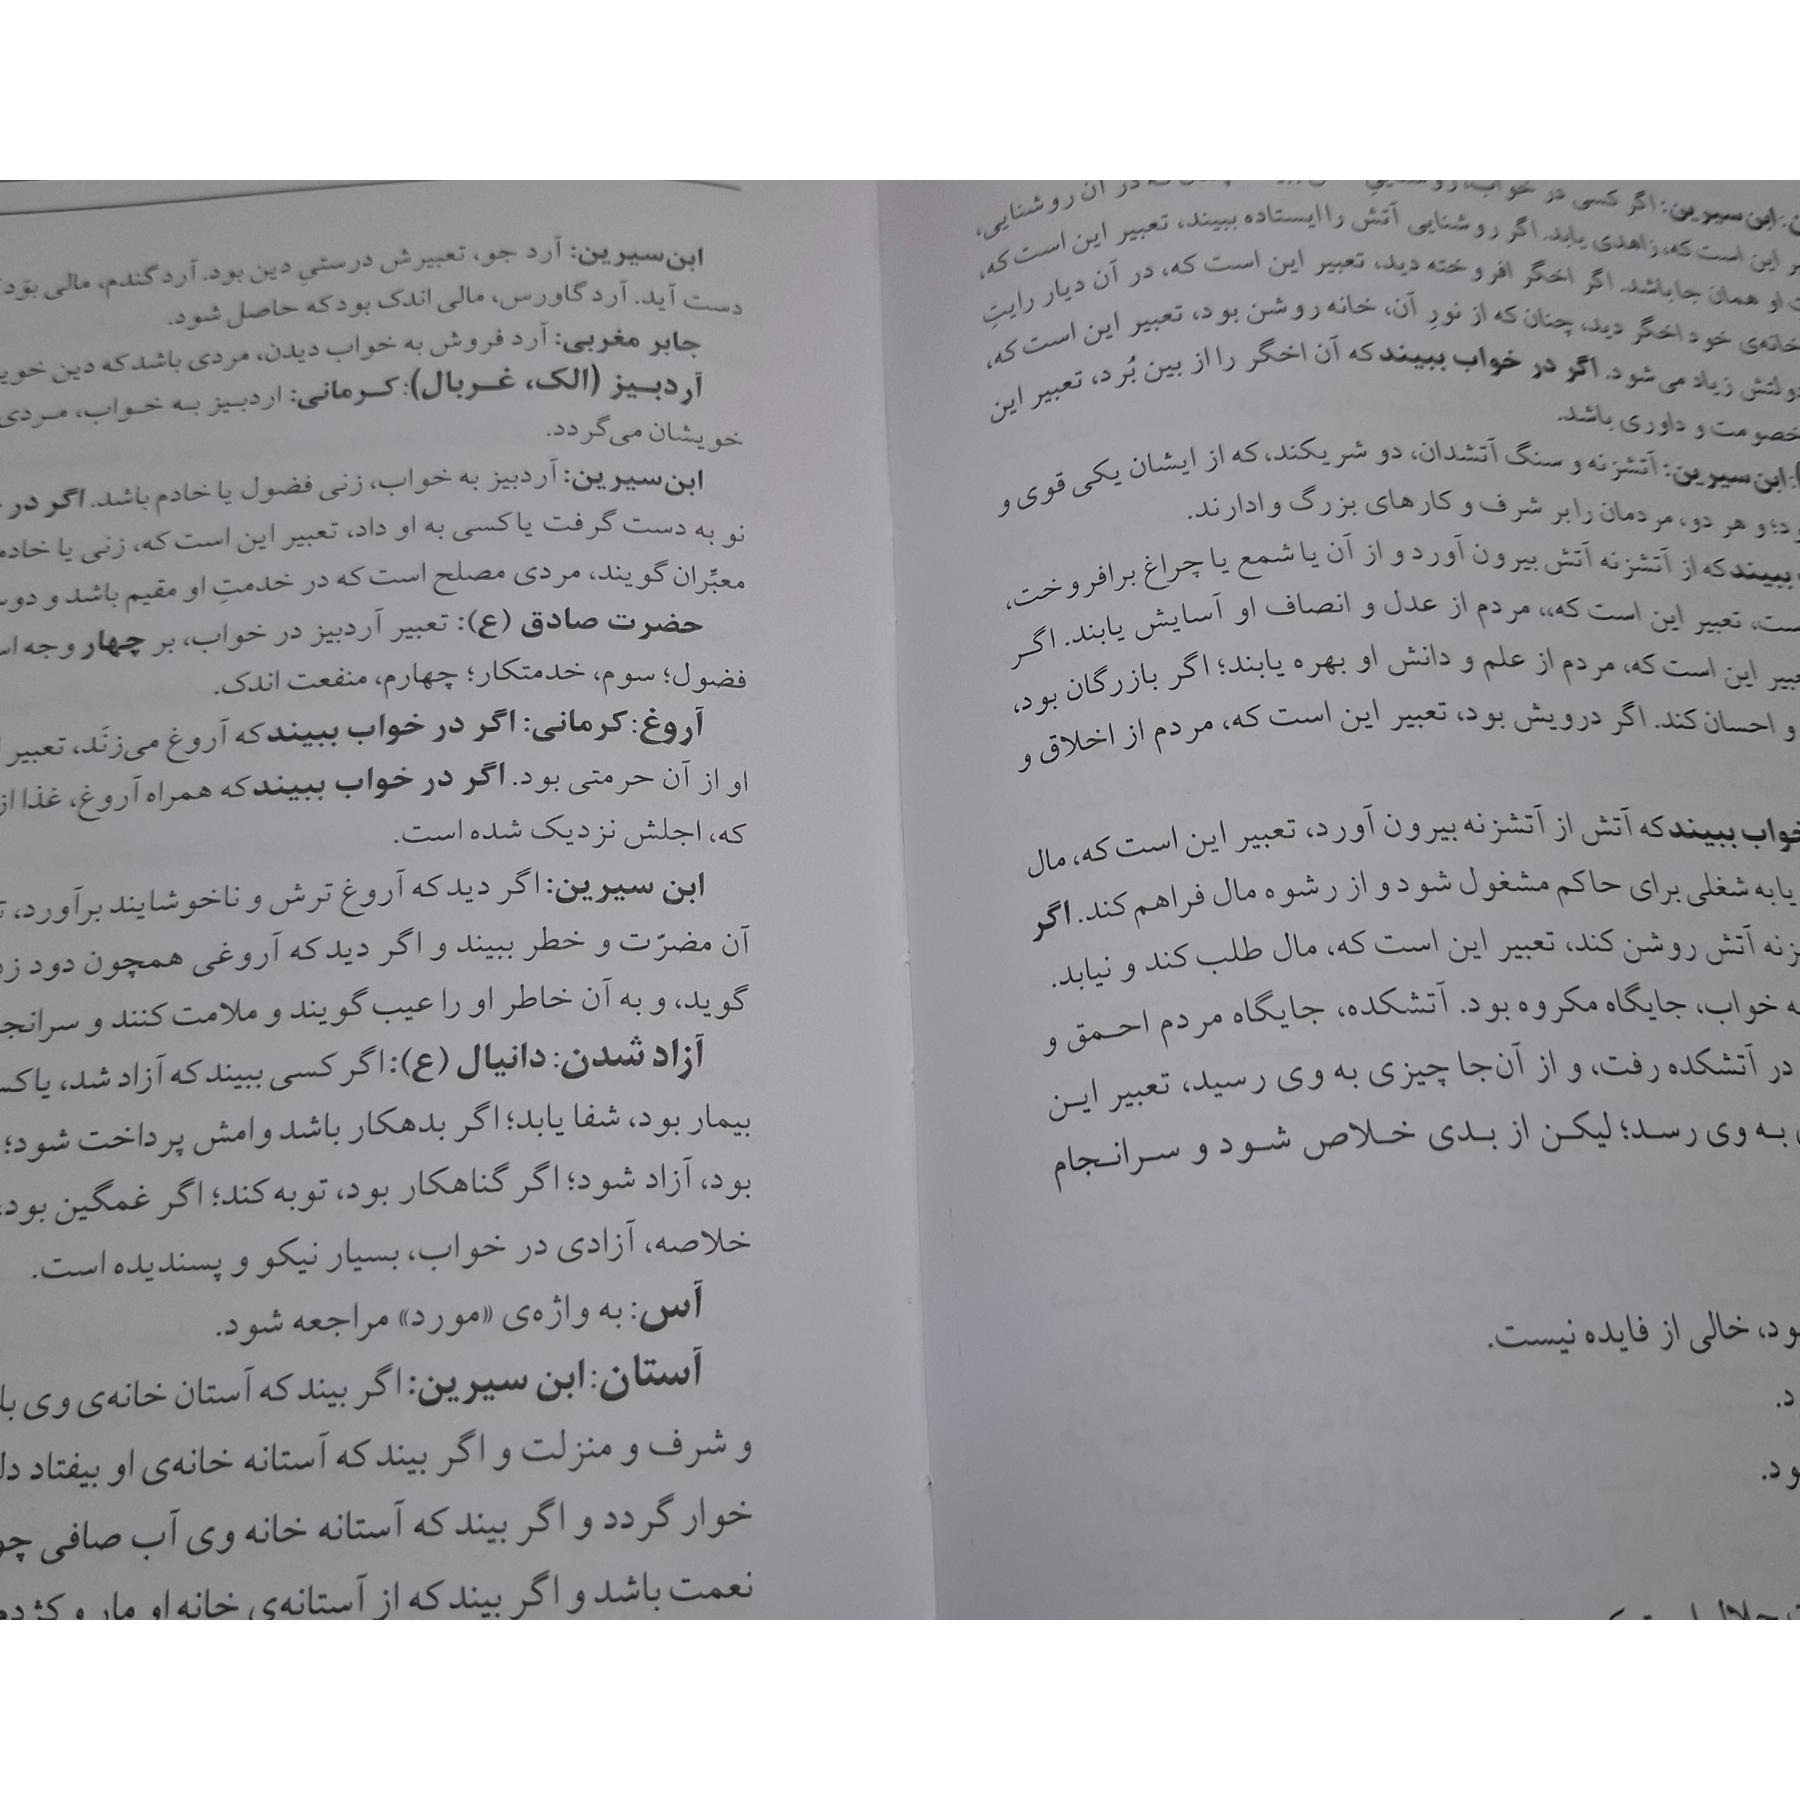 ابن سیرین: اگر کسی در خواب، در آن روشنایی،
این است که، زاهدی یابد. اگر روشنایی آتش را ایستاده ببیند، تعبیر این است که،
او همان جا باشد. اگر اخگر افروخته دید، تعبیر این است که، در آن دیار رایتِ
خانه‌ی خود اخگر دید، چنان که از نورِ آن، خانه روشن بود، تعبیر این است که،
دولتش زیاد می‌شود. اگر در خواب ببیند که آن اخگر را از بین بُرد، تعبیر این
خصومت و داوری باشد.
ابن سیرین: آتشزنه و سنگ آتشدان، دو شریکند، که از ایشان یکی قوی و
و هر دو، مردمان را بر شرف و کارهای بزرگ وادارند.
ببیند که از آتشزنه آتش بیرون آورد و از آن یا شمع یا چراغ برافروخت،
تعبیر این است که،، مردم از عدل و انصاف او آسایش یابند. اگر
این است که، مردم از علم و دانش او بهره یابند؛ اگر بازرگان بود،
و احسان کند. اگر درویش بود، تعبیر این است که، مردم از اخلاق و
خواب ببیند که آتش از آتشزنه بیرون آورد، تعبیر این است که، مال
یا به شغلی برای حاکم مشغول شود و از رشوه مال فراهم کند. اگر
آتش روشن کند، تعبیر این است که، مال طلب کند و نیابد.
خواب، جایگاه مکروه بود. آتشکده، جایگاه مردم احمق و
در آتشکده رفت، و از آن‌جا چیزی به وی رسید، تعبیر این
به وی رسد؛ لیکن از بدی خلاص شود و سرانجام
خالی از فایده نیست.
ابن‌سیرین: آرد جو، تعبیرش درستیِ دین بود. آرد گندم، مالی بوَد
دست آید. آرد گاورس، مالی اندک بود که حاصل شود.
جابر مغربی: آرد فروش به خواب دیدن، مردی باشد که دین
آردبیز (الک، غربال): کرمانی: اردبیز به خواب، مردی
خویشان می‌گردد.
ابن‌سیرین: آردبیز به خواب، زنی فضول یا خادم باشد. اگر در
نو به دست گرفت یا کسی به او داد، تعبیر این است که، زنی یا
معبِّران گویند، مردی مصلح است که در خدمتِ او مقیم باشد و
حضرت صادق (ع): تعبیر آردبیز در خواب، بر چهار وجه
فضول؛ سوم، خدمتکار؛ چهارم، منفعت اندک.
آروغ: کرمانی: اگر در خواب ببیند که آروغ می‌زنَد، تعبیر
او از آن حرمتی بود. اگر در خواب ببیند که همراه آروغ، غذا از
که، اجلش نزدیک شده است.
ابن سیرین: اگر دید که آروغ ترش و ناخوشایند برآورد،
آن مضرّت و خطر ببیند و اگر دید که آروغی همچون دود
گوید، و به آن خاطر او را عیب گویند و ملامت کنند و
آزاد شدن: دانیال (ع): اگر کسی ببیند که آزاد شد،
بیمار بود، شفا یابد؛ اگر بدهکار باشد وامش پرداخت شود؛
بود، آزاد شود؛ اگر گناهکار بود، توبه کند؛ اگر غمگین بود،
خلاصه، آزادی در خواب، بسیار نیکو و پسندیده است.
آس: به واژه‌ی «مورد» مراجعه شود.
آستان: ابن سیرین: اگر بیند که آستان خانه‌ی وی
و شرف و منزلت و اگر بیند که آستانه خانه‌ی او بیفتاد
خوار گردد و اگر بیند که آستانه خانه وی آب صافی
نعمت باشد و اگر بیند که از آستانه‌ی خانه او مار و